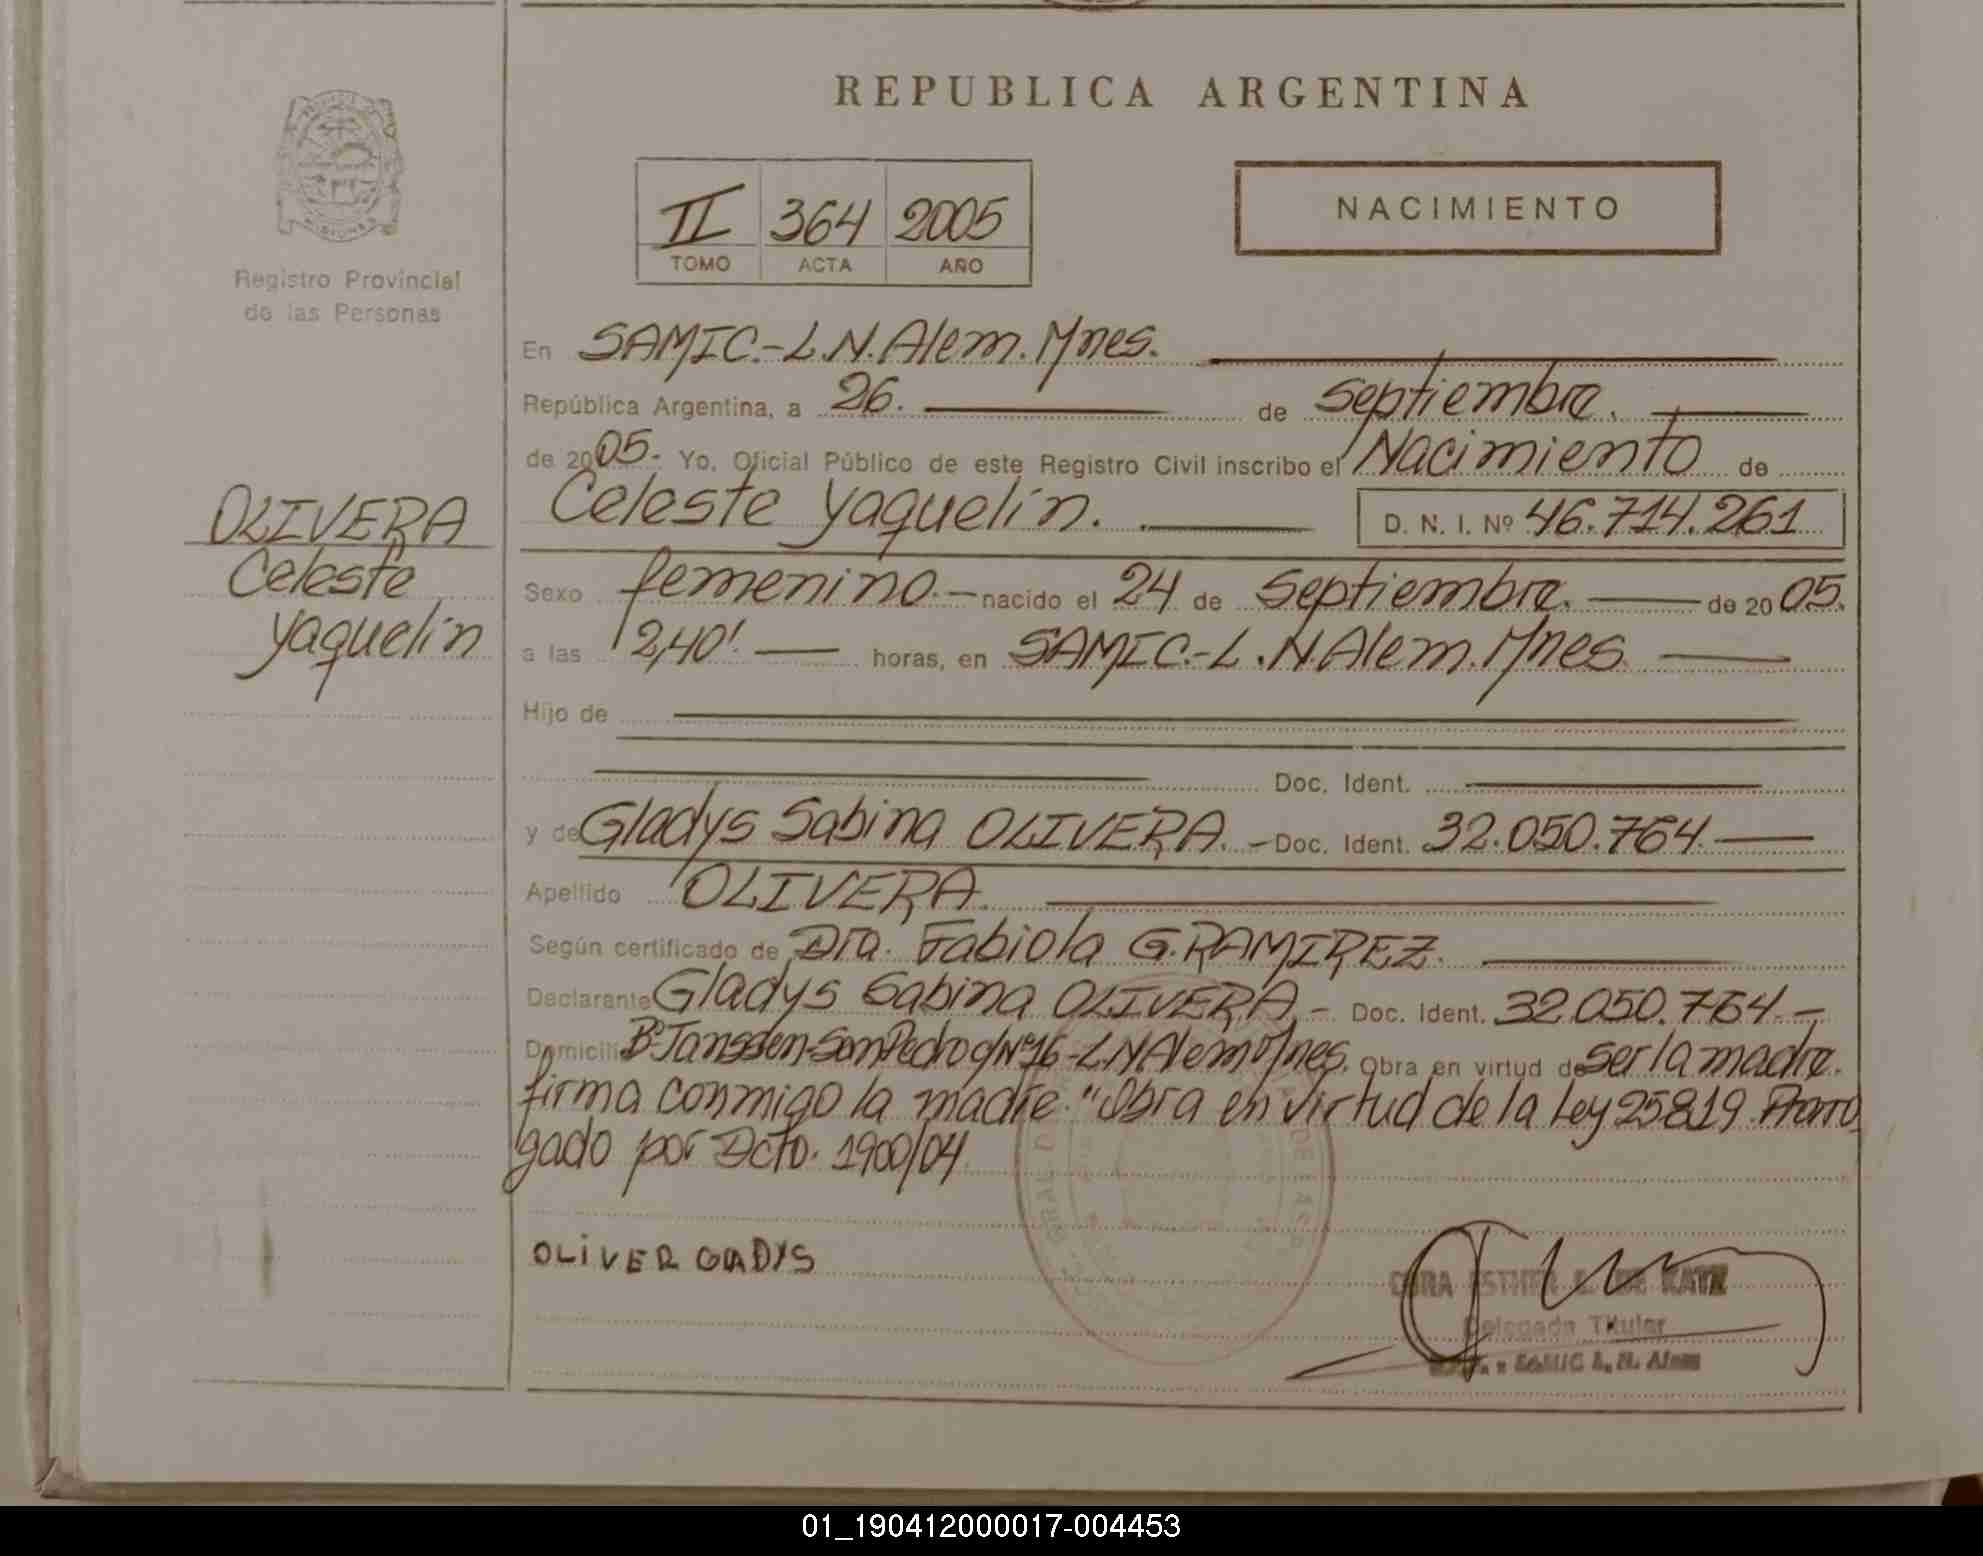 REPUBLICA ARGENTINA
II 364 2005
TOMO ACTA AÑO
NACIMIENTO
Registro Provincial
de las Personas
OLIVERA
Celeste
Yaquelin
En SAMIC.-L.N.Alem.Mnes.
República Argentina, a 26. de septiembre.
de 2005. Yo, Oficial Público de este Registro Civil inscribo el Nacimiento de
Celeste Yaquelin. D. N. I. Nº 46.714.261
Sexo femenino.- nacido el 24 de Septiembre. de 2005.
a las 12,40'. horas, en SAMIC.-L.N.Alem.Mnes.
Hijo de
Doc. Ident.
y de Gladys Sabina OLIVERA.- Doc. Ident. 32.050.764.
Apellido OLIVERA.
Según certificado de Dra. Fabiola G.RAMIREZ.
Declarante Gladys Sabina OLIVERA.- Doc. Ident. 32.050.764.-
Domicilio Bº Janssen-San Pedro Nº76-L.N.Alem Mnes. Obra en virtud de ser la madre.
firma conmigo la madre. "Obra en virtud de la Ley 25819. Prorro
gado por Dcto. 1900/04.
OLIVER GLADYS
ESTHER DE KATZ
Delegada Titular
SAMIC L. N. Alem
01_190412000017-004453